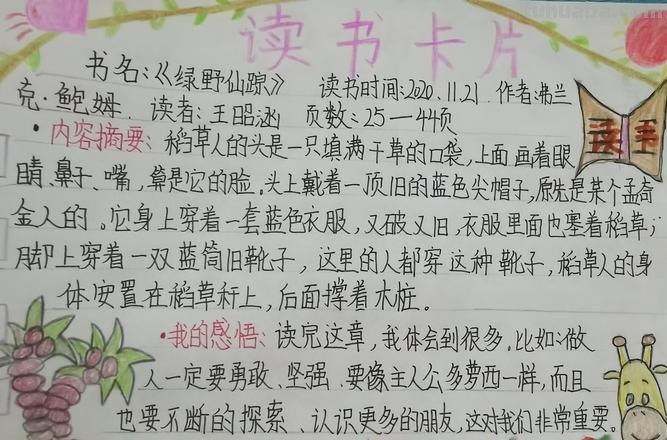 读书卡片
书名:《绿野仙踪》 读书时间:2020.11.21 作者:沸兰
克·鲍姆 读者:王昭涵 页数:25—44页
·内容摘要:稻草人的头是一只填满干草的口袋,上面画着眼
睛、鼻子、嘴,算是它的脸。头上戴着一顶旧的蓝色尖帽子,原先是某个孟奇
金人的。它身上穿着一套蓝色衣服,又破又旧,衣服里面也塞着稻草;
脚上穿着一双蓝筒旧靴子,这里的人都穿这种靴子,稻草人的身
体安置在稻草秆上,后面撑着木桩。
·我的感悟:读完这章,我体会到很多,比如:做
人一定要勇敢、坚强、要像主人公多萝西一样,而且
也要不断的探索、认识更多的朋友,这对我们非常重要。
读书